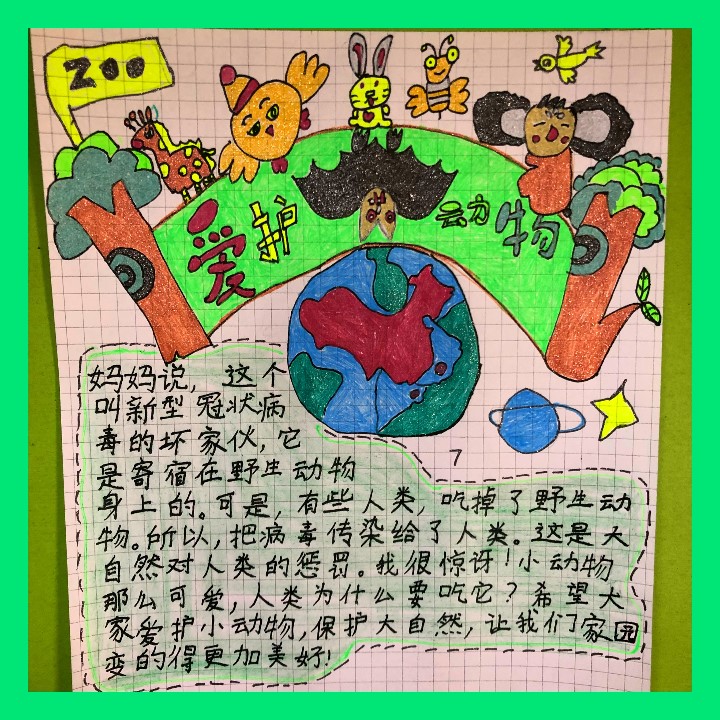 ZOO
爱护动物
妈妈说，这个
叫新型冠状病
毒的坏家伙，它
是寄宿在野生动物
身上的。可是，有些人类，吃掉了野生动
物。所以，把病毒传染给了人类。这是大
自然对人类的惩罚。我很惊讶！小动物
那么可爱，人类为什么要吃它？希望大
家爱护小动物，保护大自然，让我们家园
变的得更加美好！